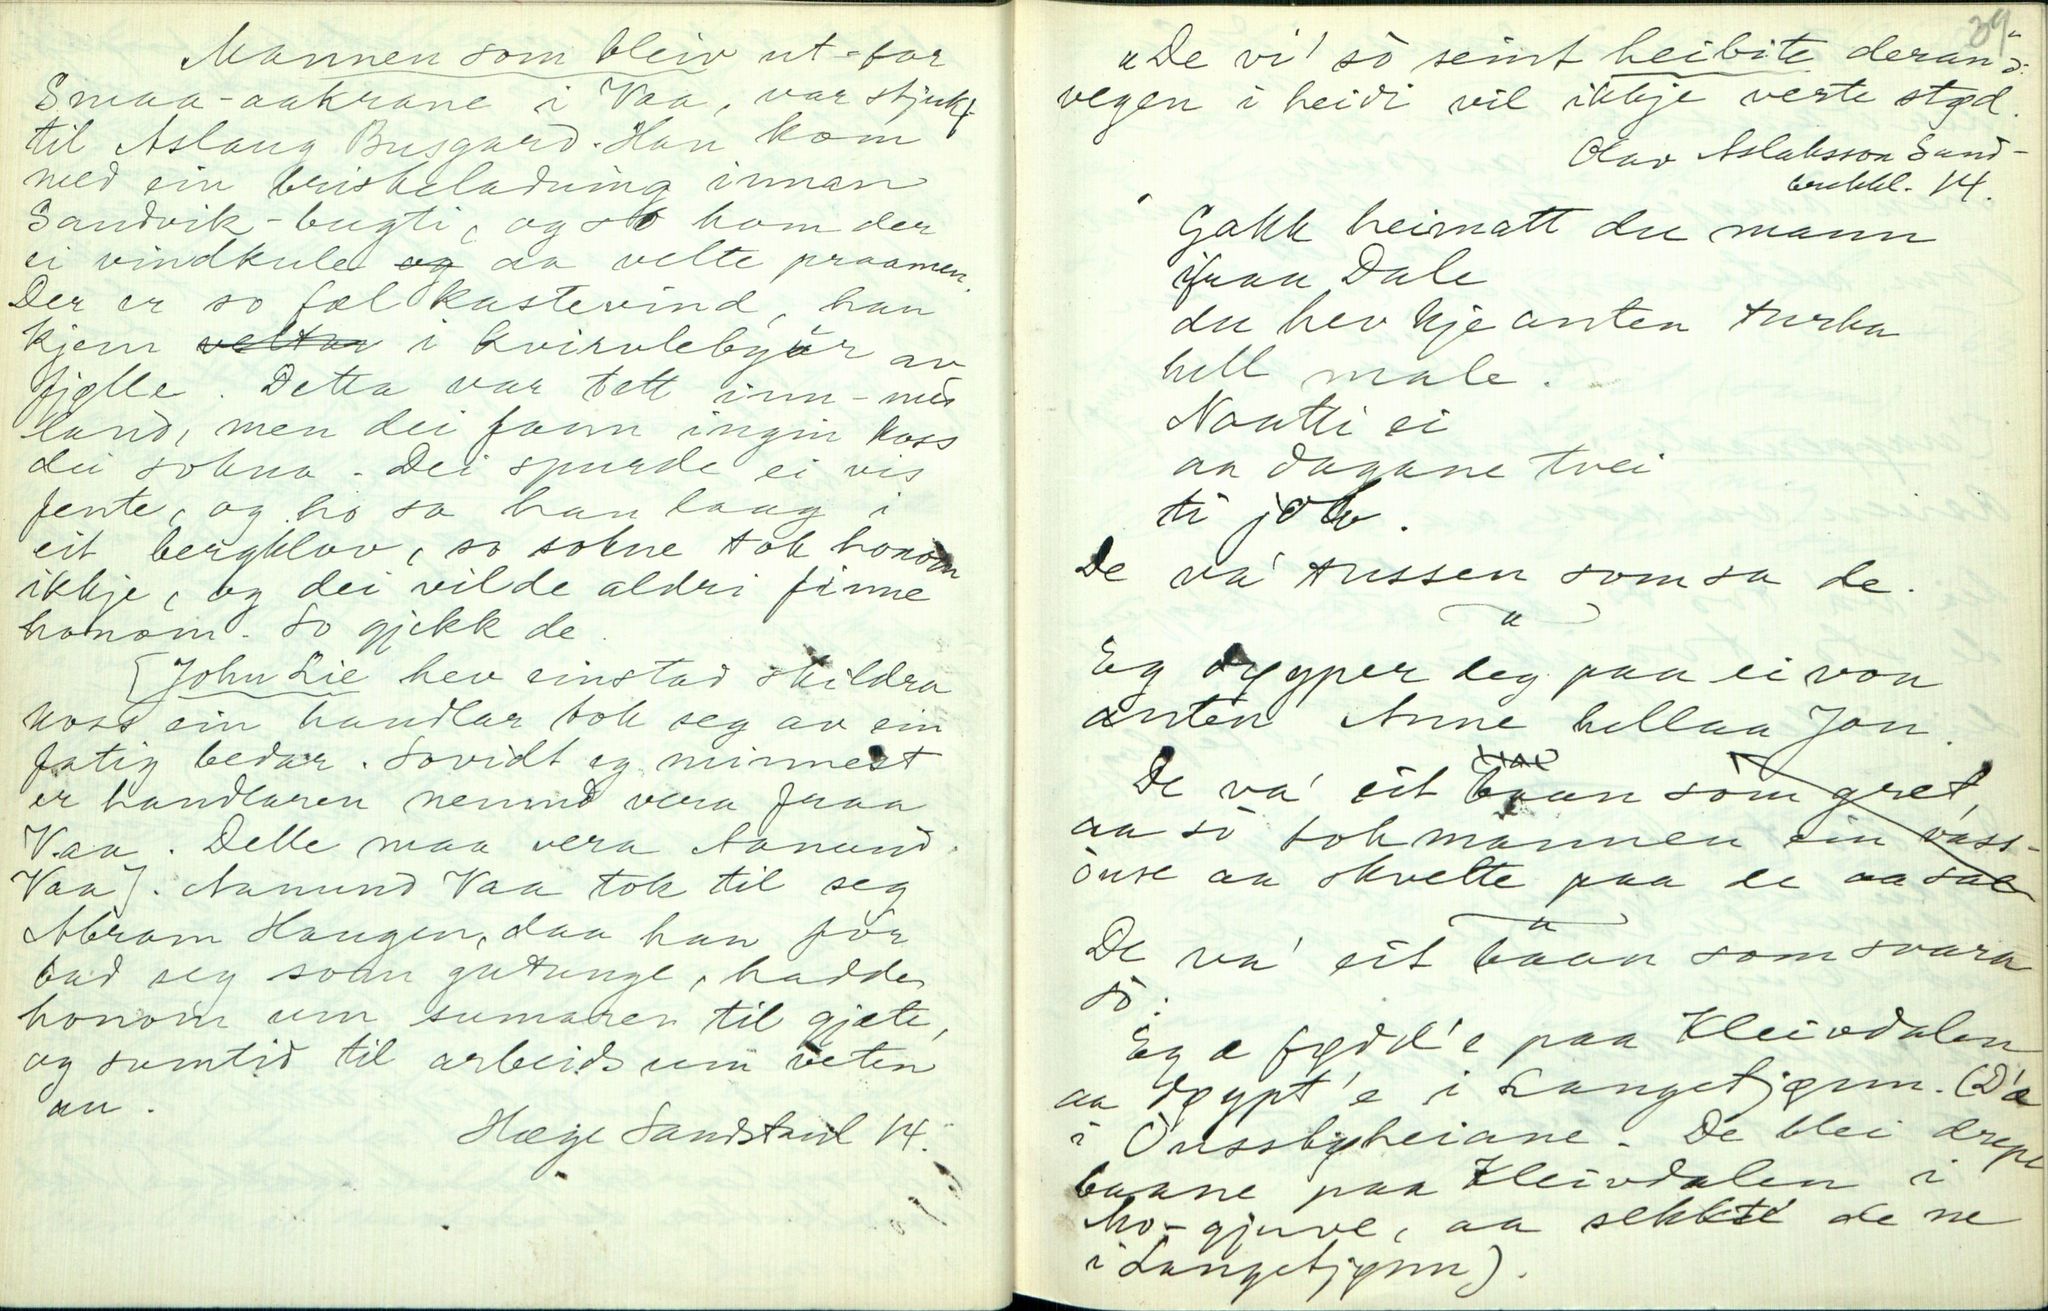 Mannen som bleiv ut-for
Smaa-aakrane i Vaa, var stjukf
til Aslaug Busgard. Han kom
med ein briskeladning innan
Sandvik-bugti, og so kom der
ei vindkule og aa velte praamen.
Der er so fæl kastevind, han
kjem veltar i kvirvlebyur av
fjølle. Detta var tett inn-med
land, men dei fann ingin koss
dei sokna. Dei spurde ei vis
jente, og ho sa han laag i
eit bergklov, so sokne tok honom
ikkje, og dei vilde aldri finne
honom. So gjekk de.
[John Lie hev einstad skildra
koss ein handlar tok seg av ein
fatig bedar. Sovidt eg minnest
er handlaren nemnd vera fraa
Vaa. Dette maa vera Aanund
Vaa]. Aanund Vaa tok til seg
Abram Haugen, daa han for
bad seg som gutunge, hadde
honom um sumaren til gjæte,
og sumtid til arbeids um veten
au.
Hæge Sandsland 14.
39
"De vi' sò seint heibite deran"
vegen i heidi vil ikkje verte stød.
Olav Aslaksson Sand-
brekkl. 14.
Gakk heimatt du mann
ifraa Dale
du hev kje anten turka
hell male.
Naatti ei
aa dagane tvei
ti jòlv.
De va' tussen som sa de.
"
Eg døyper deg paa ei von
anten Anne hellaa Jon.
De va' eit baan som gret,
aa sò tok mannen ein vass-
ause aa skvette paa de aa sae
"
De va' eit baan som svara
sò:
Eg æ fødd'e paa Kleivdalen
aa døypt'e i Langetjønn. (D'æ
i Ònssbyheiane. De blei drepe
baane paa Kleivdalen i
Mo-gjuve, aa sekkte de ne
i Langetjønn).